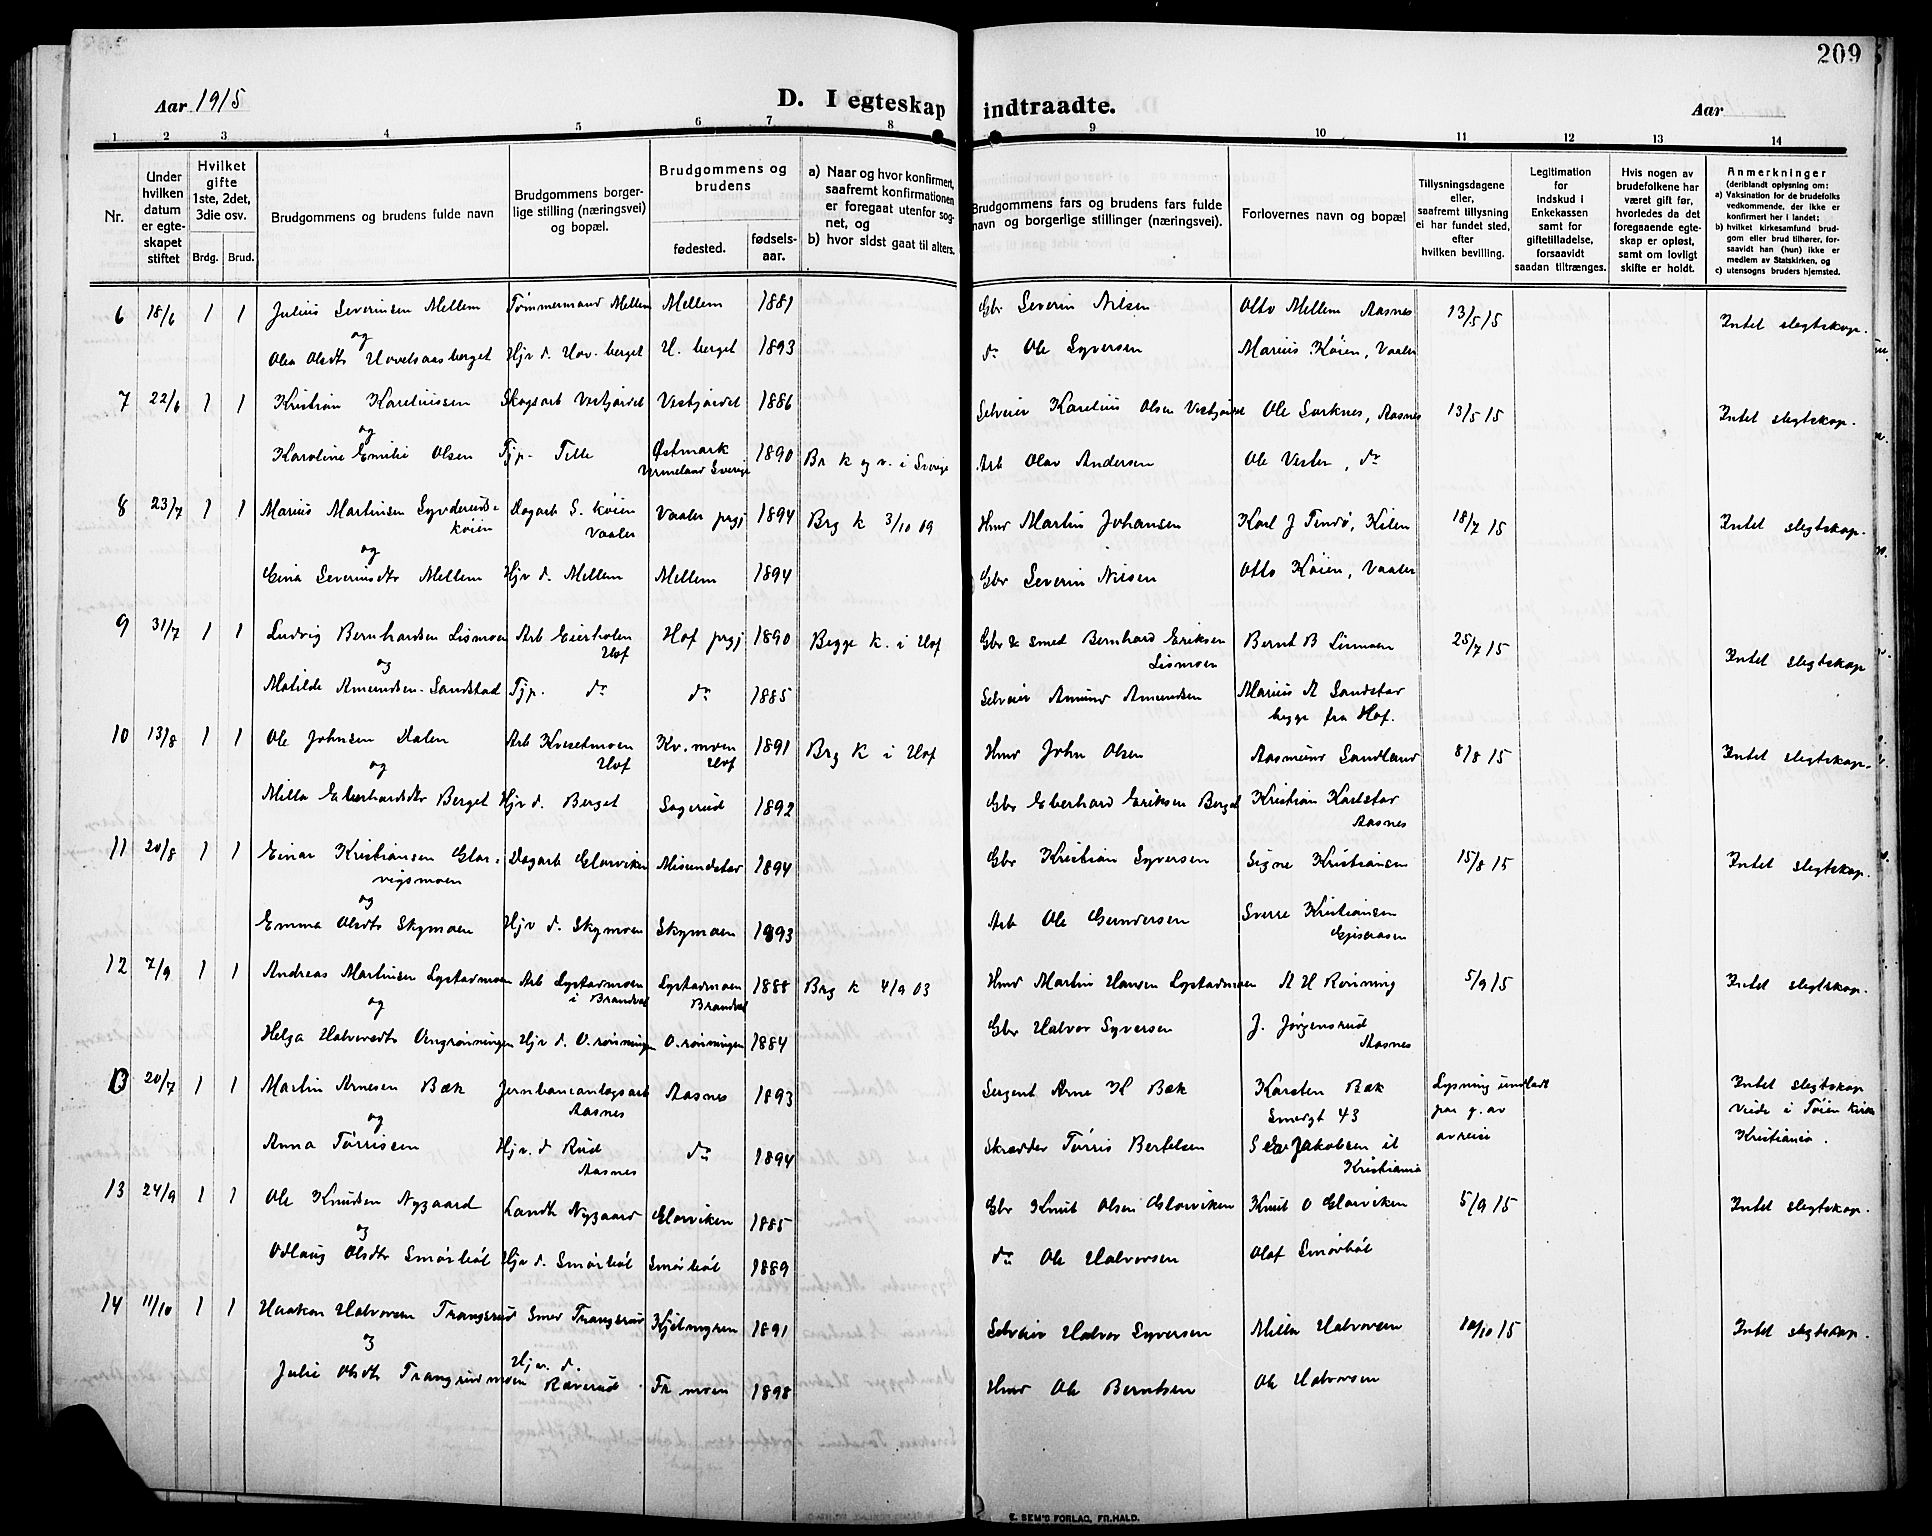 209
Aar 1915 D. I egteskap indtraadte. Aar
1 2 3 4 5 6 7 8 9 10 11 12 13 14
Nr.
Under hvilken datum er egteskapet stiftet
Hvilket gifte 1ste, 2det, 3die osv.
Brdg. Brud.
Brudgommens og brudens fulde navn
Brudgommens borgerlige stilling (næringsvei) og bopæl.
Brudgommens og brudens
fødested. fødselsaar.
a) Naar og hvor konfirmert, saafremt konfirmationen er foregaat utenfor sognet, og
b) hvor sidst gaat til alters.
Brudgommens fars og brudens fars fulde navn og borgerlige stillinger (næringsvei).
Forlovernes navn og bopæl
Tillysningsdagene eller, saafremt tillysning ei har fundet sted, efter hvilken bevilling.
Legitimation for indskud i Enkekassen samt for giftetilladelse, forsaavidt saadan tiltrænges.
Hvis nogen av brudefolkene har været gift før, hvorledes da det foregaaende egteskap er opløst, samt om lovligt skifte er holdt.
Anmerkninger (deriblandt oplysning om:
a) Vaksination for de brudefolks vedkommende, der ikke er konfirmert her i landet;
b) hvilket kirkesamfund brudgom eller brud tilhører, forsaavidt han (hun) ikke er medlem av Statskirken, og
c) utensogns bruders hjemsted.
6 18/6 1 1 Julius Severinsen Mellem Tømmermand Mellem Mellem 1881 Gbr Severin Nilsen Otto Mellem Aasnes 13/5 15 Intet slegtskap.
og
Olea Olsdtr Hovelsaasberget Hjv d. Hov.berget H. berget 1893 do Ole Syversen Marius Köien, Vaaler
7 22/6 1 1 Kristian Kareliussen Skogsarb Vestjordet Vestjordet 1886 Selveier Karelius Olsen Vestjordet Ole Sorknes, Aasnes 13/5 15 Intet slegtskap.
og
Karoline Emilie Olsen Tjp. Telle Østmark Vermeland Sverige 1890 Br k og v. i Sverige Arb Olav Andersen Ole Vester, do
8 23/7 1 1 Marius Martinsen Syvderudskøien Dagarb S. køien Vaaler Vaaler prgj 1894 Brg k 3/10 09 Hmd Martin Johansen Karl J Tendø, Kilen 18/7 15 Intet slegtskap.
og
Gina Severinsdtr Mellem Hjv d. Mellem Mellem 1894 Gbr Severin Nilsen Otto Köien, Vaaler
9 31/7 1 1 Ludvig Bernhardsen Lismoen Arb Eierholen Hof Hof prgj 1890 Begge k. i Hof Gbr & smed Bernhard Eriksen Lismoen Bernt B Lismoen 25/7 15 Intet slegtskap
og
Matilde Amundsen Sandstad Tjp. do do 1885 Selveier Amund Amundsen Marius A Sandstad begge fra Hof.
10 13/8 1 1 Ole Johnsen Dalen Arb Kvesetmoen Hof Kv.moen Hof 1891 Brg k i Hof Hmd John Olsen Aasmund Sandland 8/8 15 Intet slegtskap.
og
Milla Eberhardsdtr Berget Hjv d. Berget Sagerud 1892 Gbr Eberhard Eriksen Berget Kristian Karlstad Aasnes
11 20/8 1 1 Einar Kristiansen Glorvigsmoen Dagarb Glorviken Misundstad 1894 Gbr Kristian Syversen Signe Kristiansen 15/8 15 Intet slegtskap.
og
Emma Olsdtr Skymoen Hjv d. Skymoen Skymoen 1893 Arb Ole Gundersen Sverre Kristiansen Gjiseraasen
12 7/9 1 1 Andreas Martinsen Lystadmoen Arb Lystadmoen i Brandval Lystadmoen Brandval 1888 Brg k 4/9 03 Hmd Martin Hansen Lystadmoen A H Rønning 5/9 15 Intet slegtskap.
og
Helga Halvorsdtr Ovngrønningen Hjv d. O.rønningen O.rønningen 1884 Gbr Halvor Syversen J. Jørgensrud Aasnes
13 20/7 1 1 Martin Arnesen Bæk Jernbaneanlægsarb Aasnes Aasnes 1893 Sergent Arne K Bæk Karsten Bæk Smedgt 43 Lysning undladt paa g. av avreise Intet slegtskap Viede i Tøien kirke Kristiania.
og
Anna Tørrissen Hjv. d Rud Aasnes do 1894 Skrædder Tørris Bertelsen Jakobsen Kristiania
13 24/9 1 1 Ole Knudsen Nygaard Landh Nygaard Glorviken 1885 Gbr Knut Olsen Glorviken Knut O Glorviken 5/9 15 Intet slegtskap.
og
Odlaug Olsdtr Smørhøl Hjv d. Smørhøl Smørhøl 1889 do Ole Halvorsen Olaf Smørhøl
14 11/10 1 1 Haakon Halvorsen Trangsrud Smed Trangsrud Kjølmyren 1891 Selveier Halvor Syversen Milla Halvorsen 10/10 15 Intet slegtskap.
og
Julie Olsdtr Trangsrudmoen Hjv. d. Raverud Tr moen 1898 Hmd Ole Berntsen Ole Halvorsen
E. SEM'S FORLAG, FR.HALD.